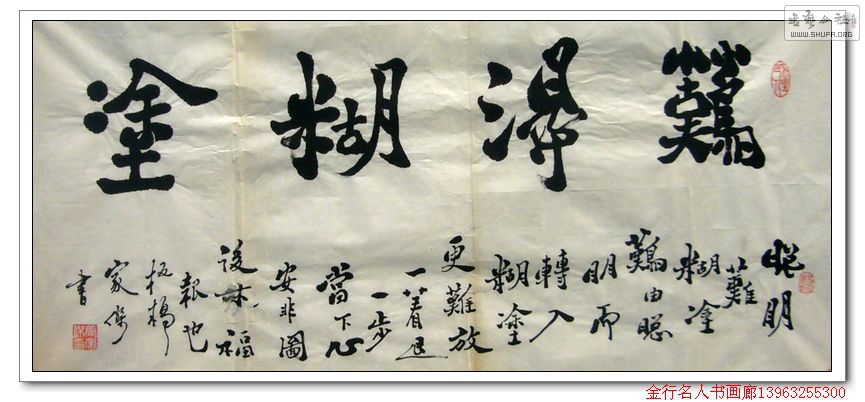 書法公社
WWW.SHUFA.ORG
難得糊塗
聰明
難
糊塗
難由聰
明而
轉入
糊塗
更難放
一着退
一步
當下心
安非圖
後來福
報也
板橋
家
書
金行名人书画廊13963255300